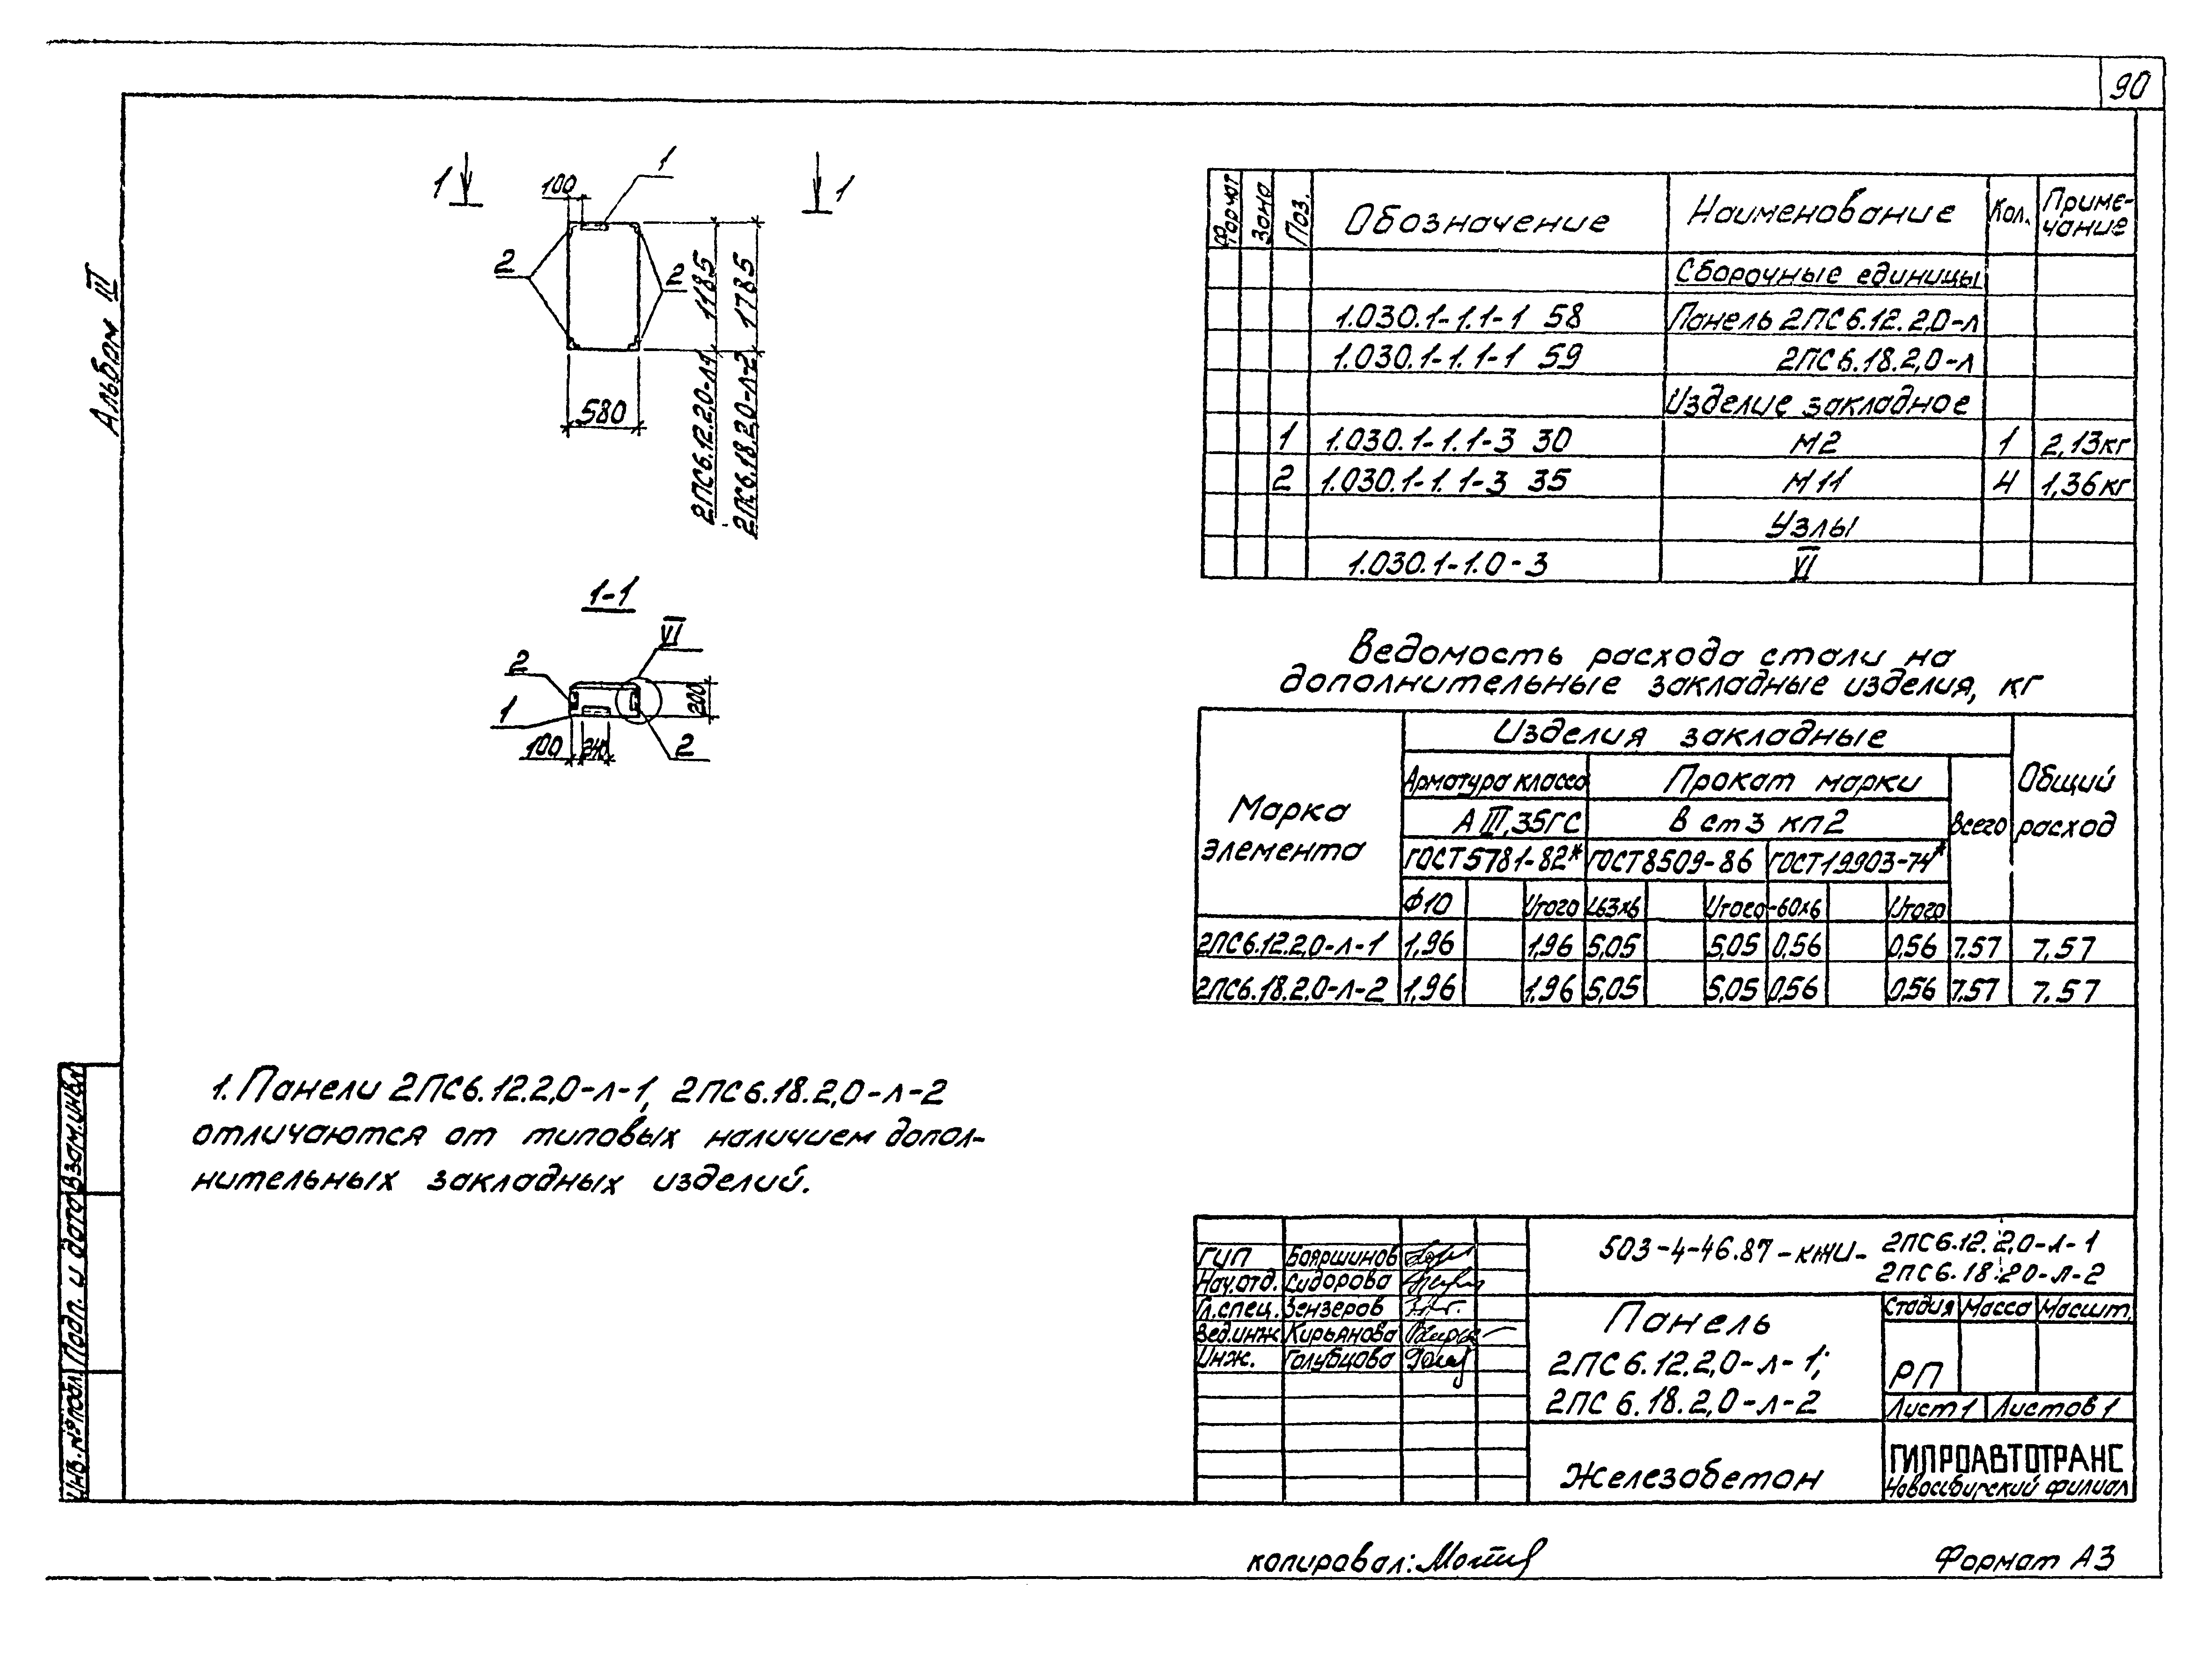 90
Альбом III
1 1
100
1
2 2
1185
1785
580
2ПС6.12.2,0-л-1
2ПС6.18.2,0-л-2
1-1
VI
2
1
200
100 240 2
Формат Зона Поз. Обозначение Наименование Кол. Приме-
чание
Сборочные единицы
1.030.1-1.1-1 58 Панель 2ПС6.12.2,0-л
1.030.1-1.1-1 59 2ПС6.18.2,0-л
Изделие закладное
1 1.030.1-1.1-3 30 М2 1 2,13кг
2 1.030.1-1.1-3 35 М11 4 1,36кг
Узлы
1.030.1-1.0-3 VI
Ведомость расхода стали на
дополнительные закладные изделия, кг
Марка
элемента
Изделия закладные
Арматура класса Прокат марки
АIII,35ГС Вст3 кп2
ГОСТ5781-82* ГОСТ8509-86 ГОСТ19903-74*
Всего
Общий
расход
Ф10 Итого L63х6 Итого -60х6 Итого
2ПС6.12.2,0-л-1 1,96 1,96 5,05 5,05 0,56 0,56 7,57 7,57
2ПС6.18.2,0-л-2 1,96 1,96 5,05 5,05 0,56 0,56 7,57 7.57
1. Панели 2ПС6.12.2,0-л-1, 2ПС6.18.2,0-л-2
отличаются от типовых наличием допол-
нительных закладных изделий.
503-4-46.87-КЖИ- 2ПС6.12.2,0-л-1
2ПС6.18.20-л-2
ГИП Бояршинов
Нач.отд. Сидорова
Гл.спец. Зензеров
Вед.инж Кирьянова
Инж. Голубцова
Панель
2ПС6.12.2,0-л-1;
2ПС6.18.2,0-л-2
Стадия Масса Масшт.
РП
Лист 1 Листов 1
Железобетон
ГИПРОАВТОТРАНС
Новосибирский филиал
Инв. № подл. Подп. и дата Взам.инв.№
копировал:
Формат А3